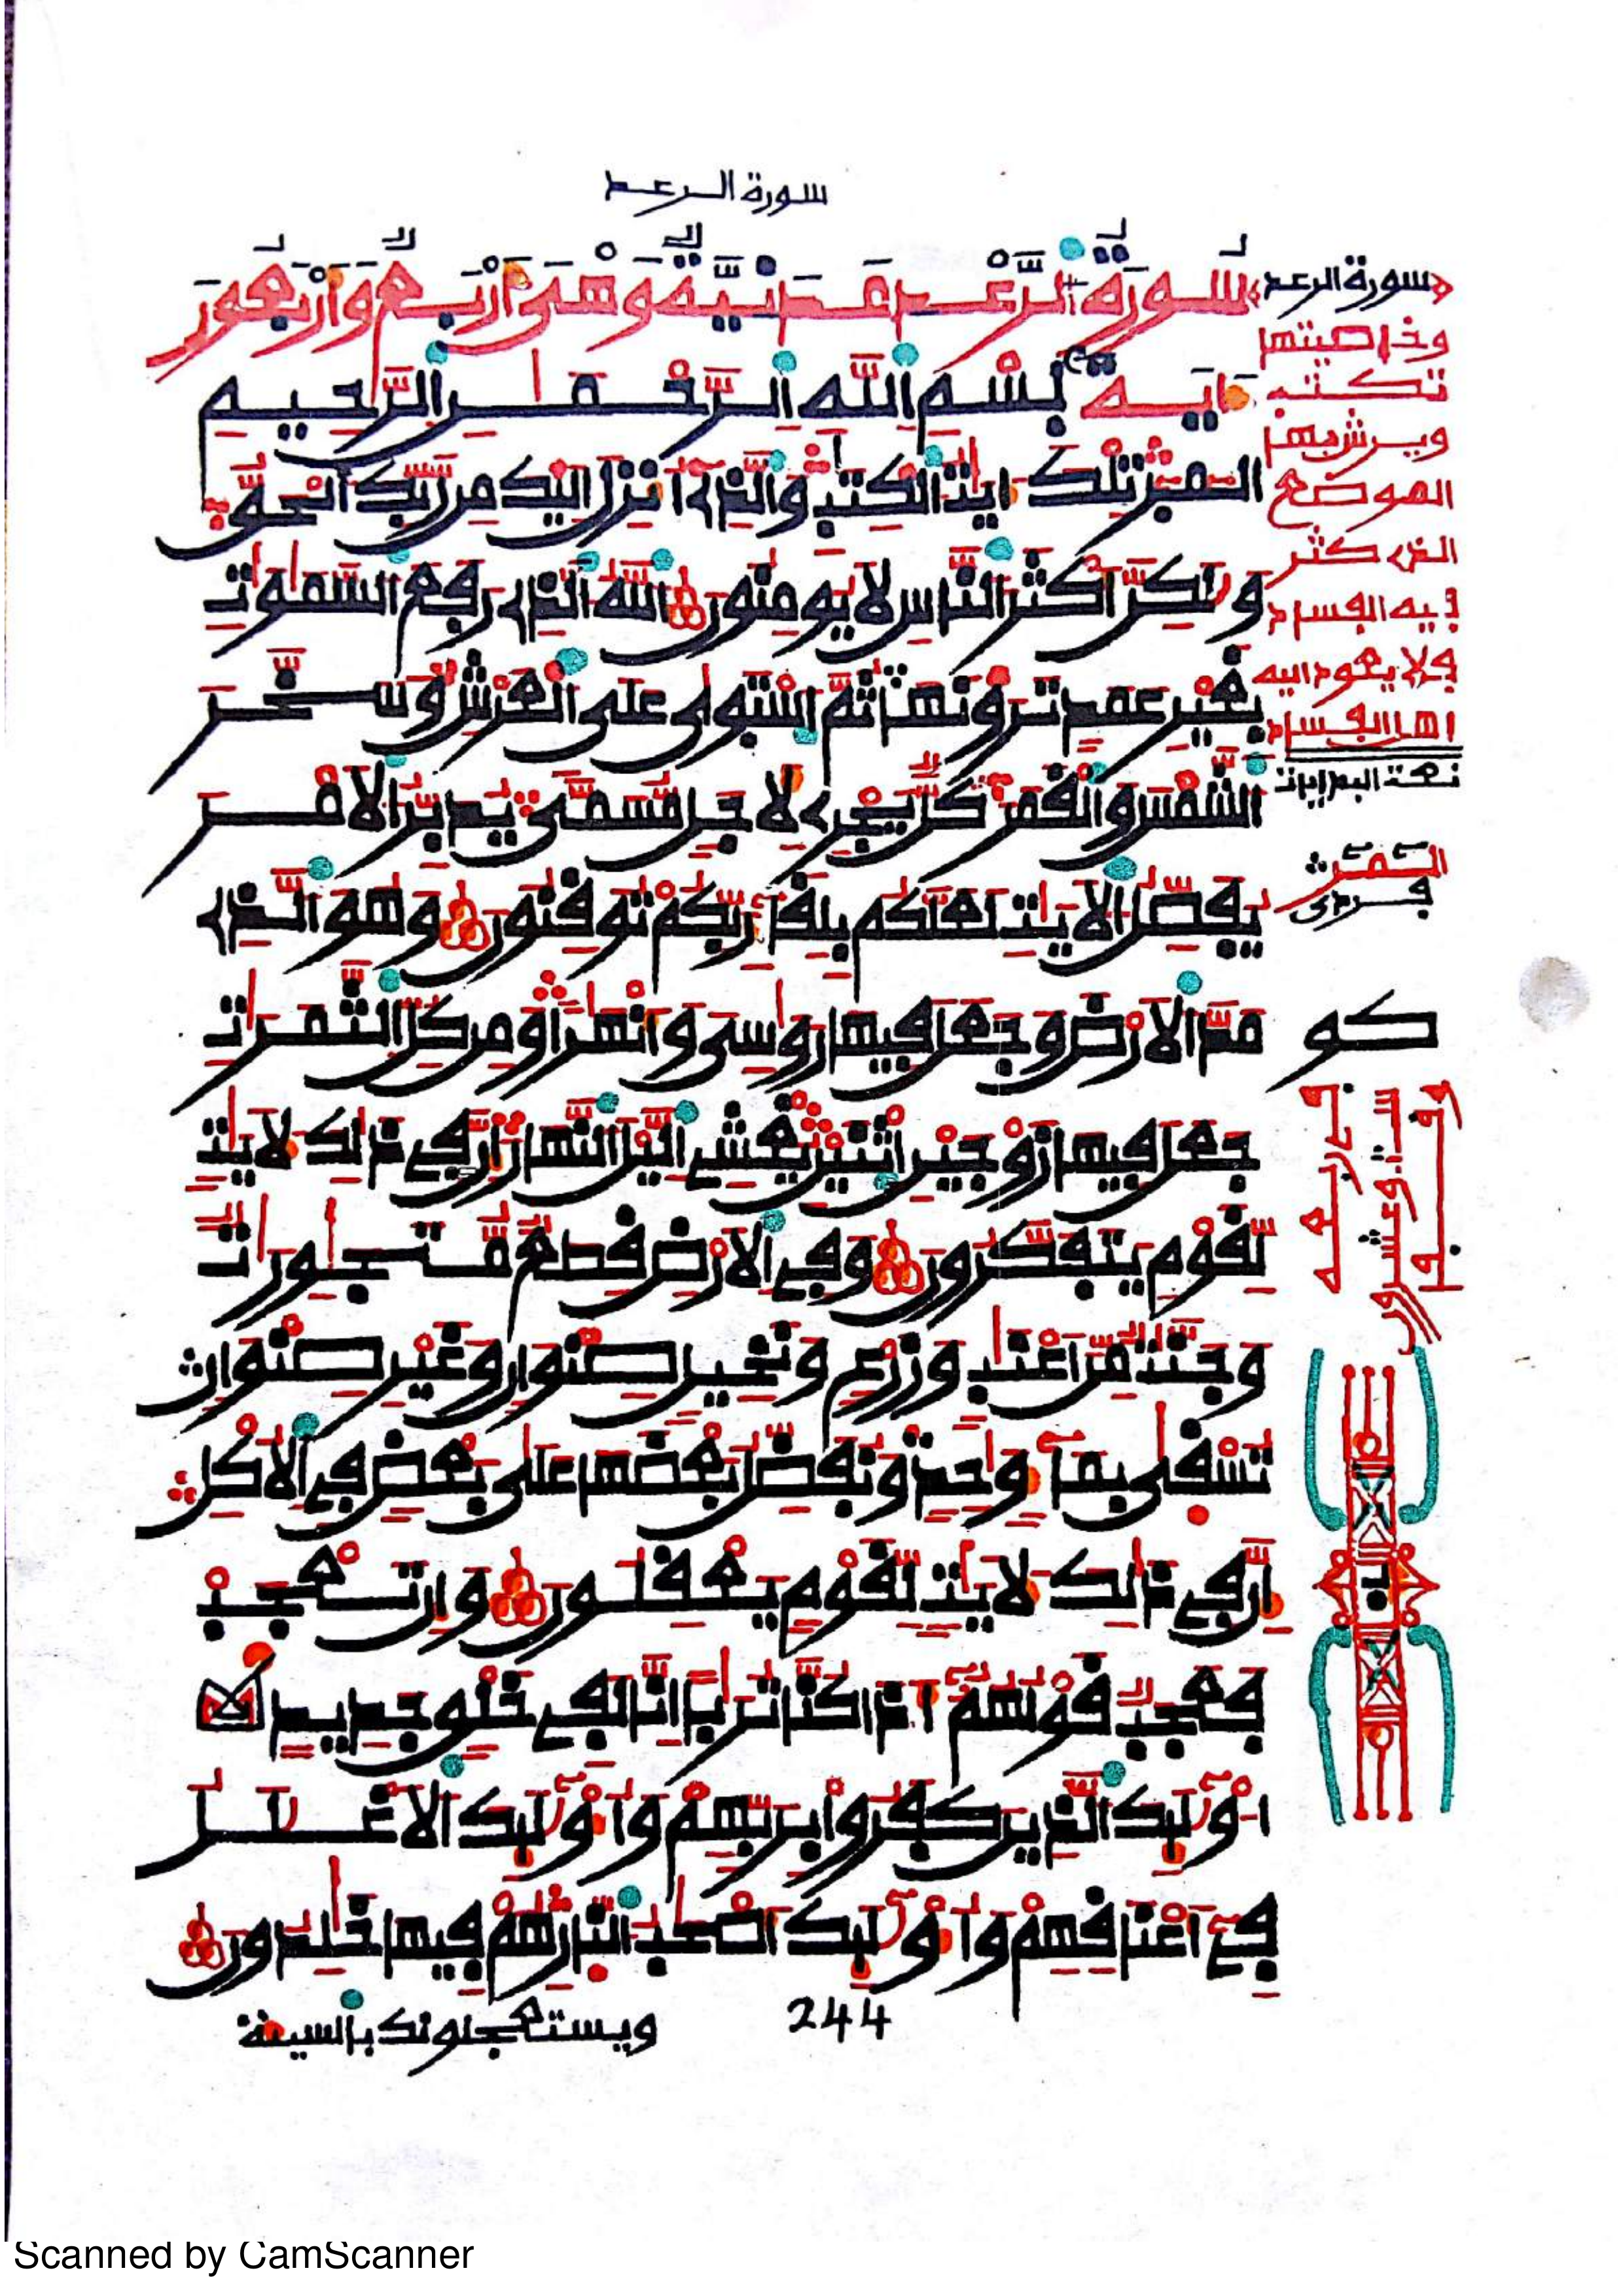 سورة الرعد
سُورَةُ الرَّعْدِ مَدَنِيَّةٌ وَهْىَ أَرْبَعٌ وَأَرْبَعُونَ
ءَايَةً بِسْمِ اللَّهِ الرَّحْمَٰنِ الرَّحِيمِ
المر تلك ءايت الكتب والذے أنزل إليك من ربك الحق
ولكن أكثر الناس لا يومنون الله الذے رفع السموت
بغير عمد ترونها ثم استوى على العرش وسخر
الشمس والقمر كل يجرے لأجل مسمى يدبر الامر
يفصل الايت لعلكم بلقاء ربكم توقنون وهو الذے
مد الارض وجعل فيها روسى وأنهرا ومن كل الثمرت
جعل فيها زوجين اثنين يغشى اليل النهار إن فى ذلك لأيت
لقوم يتفكرون وفى الارض قطع متجورت
وجنت من اعنب وزرع ونخيل صنوان وغير صنوان
تسقى بماء وحد ونفضل بعضها على بعض فى الاكل
إن فى ذلك لأيت لقوم يعقلون وإن تعجب
فعجب قولهم أ۟ذا كنا تربا إنا لفى خلق جديد
أولئك الذين كفروا بربهم وأولئك الاغلل
فى أعنقهم وأولئك أصحب النار هم فيها خلدون
ويستعجلونك بالسيئة
244
سورة الرعد
وخاصيتها
تكتب
ويرش بها
الموضع
الذے كثر
فيه الفساد
فلا يعود اليه
اهل الفساد
Scanned by CamScanner